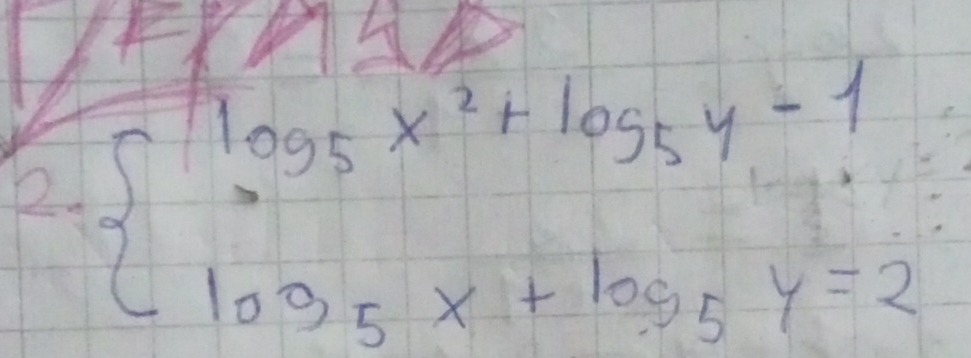 2. { log₅ x² + log₅ y - 1
log₅ x + log₅ y = 2